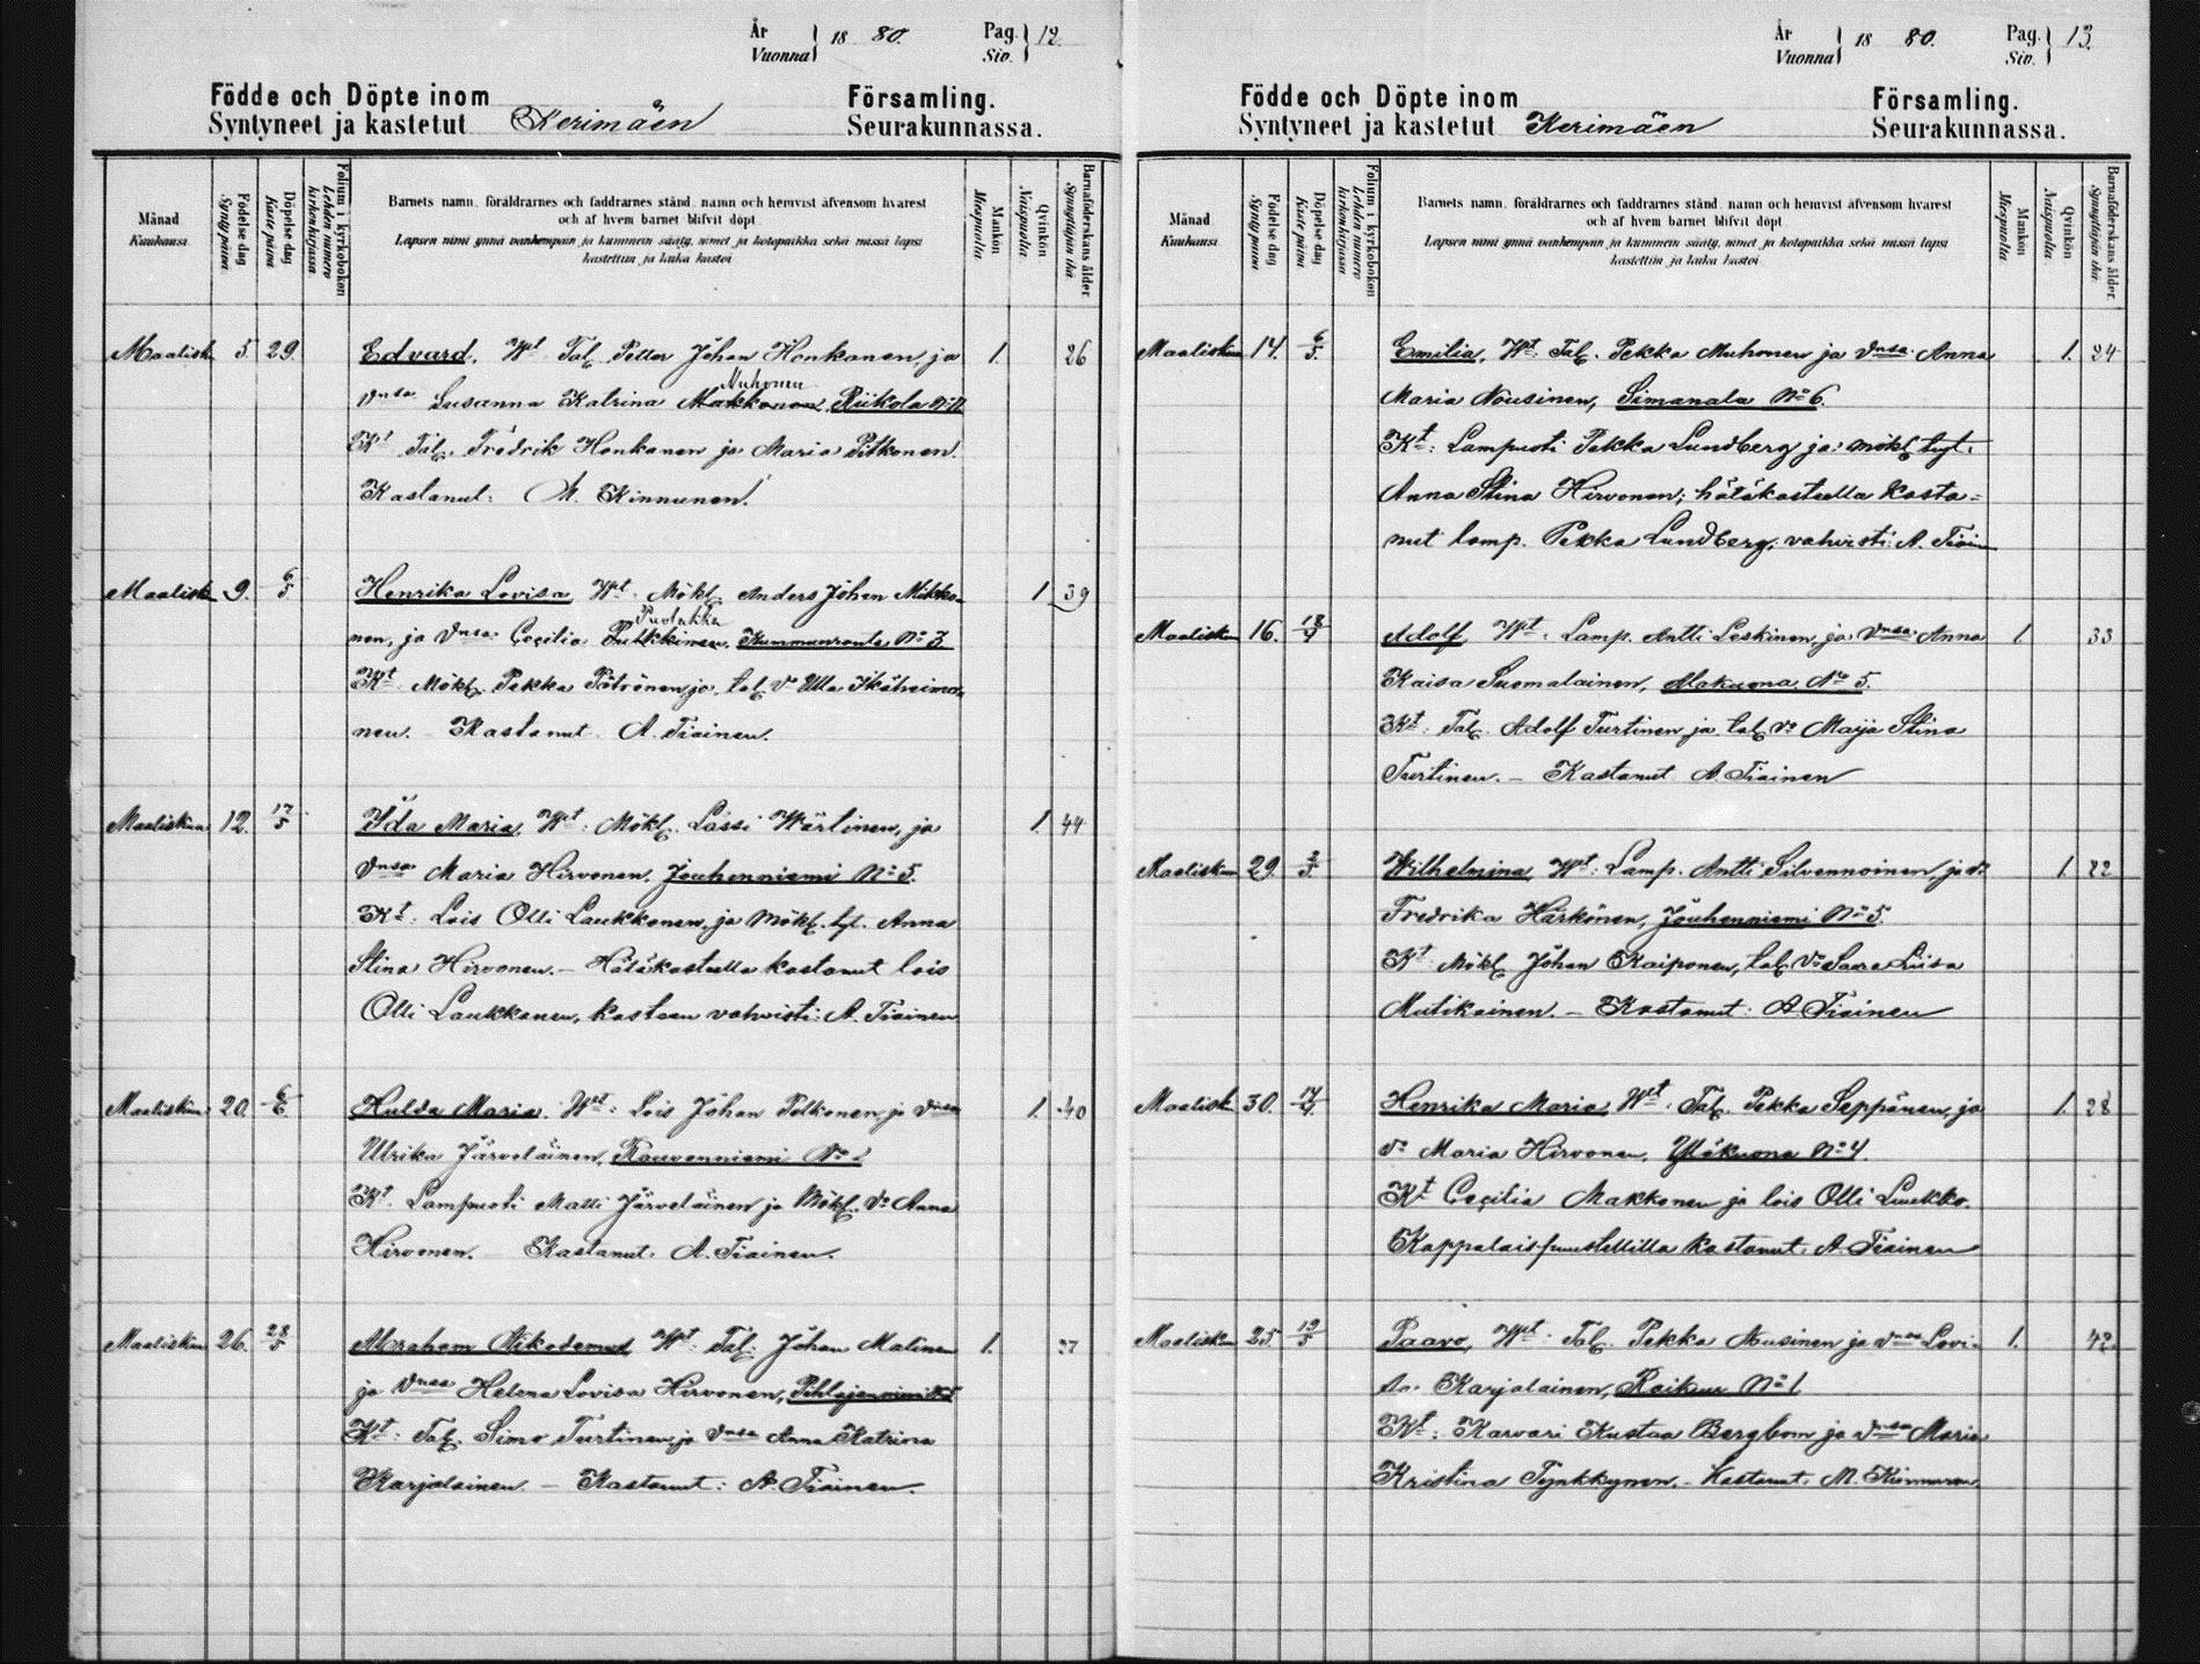 År
Vuonna 18 80. Pag. Siv. 12.
Födde och Döpte inom Församling.
Syntyneet ja kastetut Kerimäen Seurakunnassa.
Månad
Kuukausi
Födelse dag
Synty päivä
Döpelse dag
Kaste päivä
Folium i kyrkoboken
Lehden numero kirkonkirjassa
Barnets namn, föräldrarnes och faddrarnes stånd, namn och hemvist äfvensom hvarest
och af hvem barnet blifvit döpt
Lapsen nimi ynnä vanhempain ja kummein sääty, nimet ja kotopaikka sekä missä lapsi
kastettiin ja kuka kastoi
Mankön
Miespuolia
Qvinkön
Naispuolia
Barnaföderskans ålder.
Synnyttäjän ikä
Maalisk. 5. 29. Edvard. Wt Tal. Petter Johan Honkanen, ja 1. 26
Muhonen
vnsa Susanna Katrina Makkonen Riikola
Kt Tal. Fredrik Honkanen ja Maria Pitkonen.
Kastanut: M. Kinnunen.
Maalisk. 9. 6/5 Henrika Lovisa Wt. Mökl. Anders Johan Mikko- 1 39
nen, ja vnsa Cecilia Kummunranta No 3.
Kt Mökl. Pekka ja tal. vo Ulla Ikäheimo-
nen. Kastanut A. Tiainen.
Maaliskuu 12. 17/5 Ida Maria, Wt: Mökl. Lassi Wärtinen, ja 1. 44
vnsa Maria Hirvonen. Jouhenniemi No 5.
Kt: Lois Olli Laukkanen, ja Mökl. tyt. Anna
Stina Hirvonen. – Hätäkasteella kastanut lois
Olli Laukkanen, kasteen vahvisti: A. Tiainen
Maaliskuu 20. 6/6 Hulda Maria. Wt: Lois Johan Peltonen, ja vnsa 1. 40
Ulrika Järveläinen, Rauvanniemi No 2
Kt. Lampuoti Matti Järveläinen ja Mökl. vo Anna
Hirvonen. Kastanut: A. Tiainen.
Maaliskuu 26. 28/5 Abraham Nikodemus Wt: Tal. Johan Malinen 1. 27
ja vnsa Helena Lovisa Hirvonen, Pihlajaniemi
Kt: Tal. Simo Turtinen ja vnsa Anna Katrina
Karjalainen – Kastanut: A. Tiainen.
År
Vuonna 18 80. Pag. Siv. 13.
Födde och Döpte inom Församling.
Syntyneet ja kastetut Kerimäen Seurakunnassa.
Månad
Kuukausi
Födelse dag
Synty päivä
Döpelse dag
Kaste päivä
Folium i kyrkoboken
Lehden numero kirkonkirjassa
Barnets namn, föräldrarnes och faddrarnes stånd, namn och hemvist äfvensom hvarest
och af hvem barnet blifvit döpt
Lapsen nimi ynnä vanhempain ja kummein sääty, nimet ja kotopaikka sekä missä lapsi
kastettiin ja kuka kastoi
Mankön
Miespuolia
Qvinkön
Naispuolia
Barnaföderskans ålder.
Synnyttäjän ikä
Maaliskuu 14. 6/5. Emilia, Wt: Tal. Pekka Muhonen ja vnsa Anna 1. 24
Maria Nousinen, Simanala No 6.
Kt: Lampuoti Pekka Lundberg ja mökl. tyt.
Anna Stina Hirvonen; hätäkasteella kasta=
nut lamp. Pekka Lundberg, vahvisti: A. Tiain
Maaliskuu 16. 18/4 Adolf Wt: Lamp. Antti Leskinen, ja vnsa Anna 1. 33
Kaisa Suomalainen, Alakuona No 5.
Kt: Tal. Adolf Turtinen ja tal. vo Maija Stina
Turtinen. – Kastanut A. Tiainen
Maaliskuu 29. 2/5. Wilhelmina Wt: Lamp. Antti Silvennoinen, ja vo 1. 22
Fredrika Härkönen, Jouhenniemi No 5.
Kt Mökl. Johan Kaiponen, tal. vo Saara Liisa
Mutikainen. – Kastanut: A. Tiainen
Maalisk. 30. 14/4. Henrika Maria, Wt: Tal. Pekka Seppänen, ja 1. 28
vo Maria Hirvonen, Yläkuona No 4.
Kt Cecilia Makkonen ja lois Olli Laukka.
Kappalais-puustellilla kastanut: A. Tiainen
Maaliskuu 25. 19/5 Paavo, Wt: Tal. Pekka Nousinen ja vnsa Lovi- 1. 42
sa Karjalainen, Raikuu No 1.
Kt: Karvari Kustaa Bergbom ja vnsa Maria
Kristina Tynkkynen. – Kastanut: M. Kinnunen.